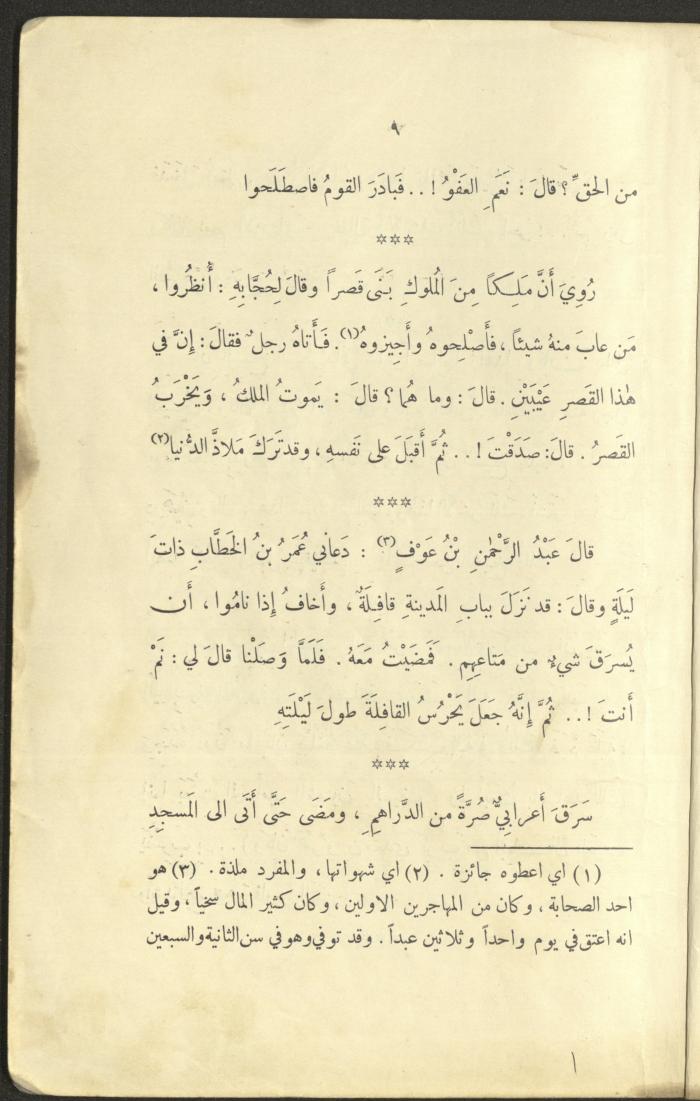 ٩
من الحقِّ ؟ قالَ : نَعَمِ العَفْوُ ! . . فَبادَرَ القومُ فاصطَلَحوا
***
رُوِيَ أَنَّ مَلِكاً مِنَ المُلوكِ بَنَى قَصراً وقالَ لِحُجَّابِهِ : أُنظُروا ،
مَن عابَ منهُ شيئاً ، فأَصْلِحوهُ وأَجِيزوهُ(١). فَأَتاهُ رجلٌ فقالَ : إِنَّ في
هٰذا القَصرِ عَيْبَيْنِ . قالَ : وما هُما ؟ قالَ : يَموتُ الملكُ ، وَيَخْرَبُ
القَصرُ . قالَ: صَدَقْتَ ! . . ثُمَّ أَقبَلَ على نَفسهِ ، وقد تَرَكَ مَلاذَّ الدُّنيا(٢)
***
قالَ عَبْدُ الرَّحْمٰنِ بْنُ عَوْفٍ(٣) : دَعاني عُمَرُ بنُ الخَطَّابِ ذاتَ
لَيلَةٍ وقالَ : قد نَزَلَ ببابِ المَدينةِ قافِلَةٌ ، وأَخافُ إِذا نامُوا ، أَن
يُسرَقَ شيءٌ من مَتاعِهِم . فَمَضَيْتُ مَعَهُ . فَلَمَّا وَصَلْنا قالَ لي : نَمْ
أَنتَ ! . . ثُمَّ إِنَّهُ جَعَلَ يَحْرُسُ القافِلَةَ طولَ لَيْلَتِهِ
***
سَرَقَ أَعرابيٌّ صُرَّةً من الدَّراهِمِ ، ومَضَى حَتَّى أَتَى الى المَسجِدِ
(١) اي اعطوه جائزة . (٢) اي شهواتها ، والمفرد ملذة . (٣) هو
احد الصحابة ، وكان من المهاجرين الاولين ، وكان كثير المال سخياً ، وقيل
انه اعتق في يوم واحداً وثلاثين عبداً . وقد توفي وهو في سن الثانية والسبعين
١